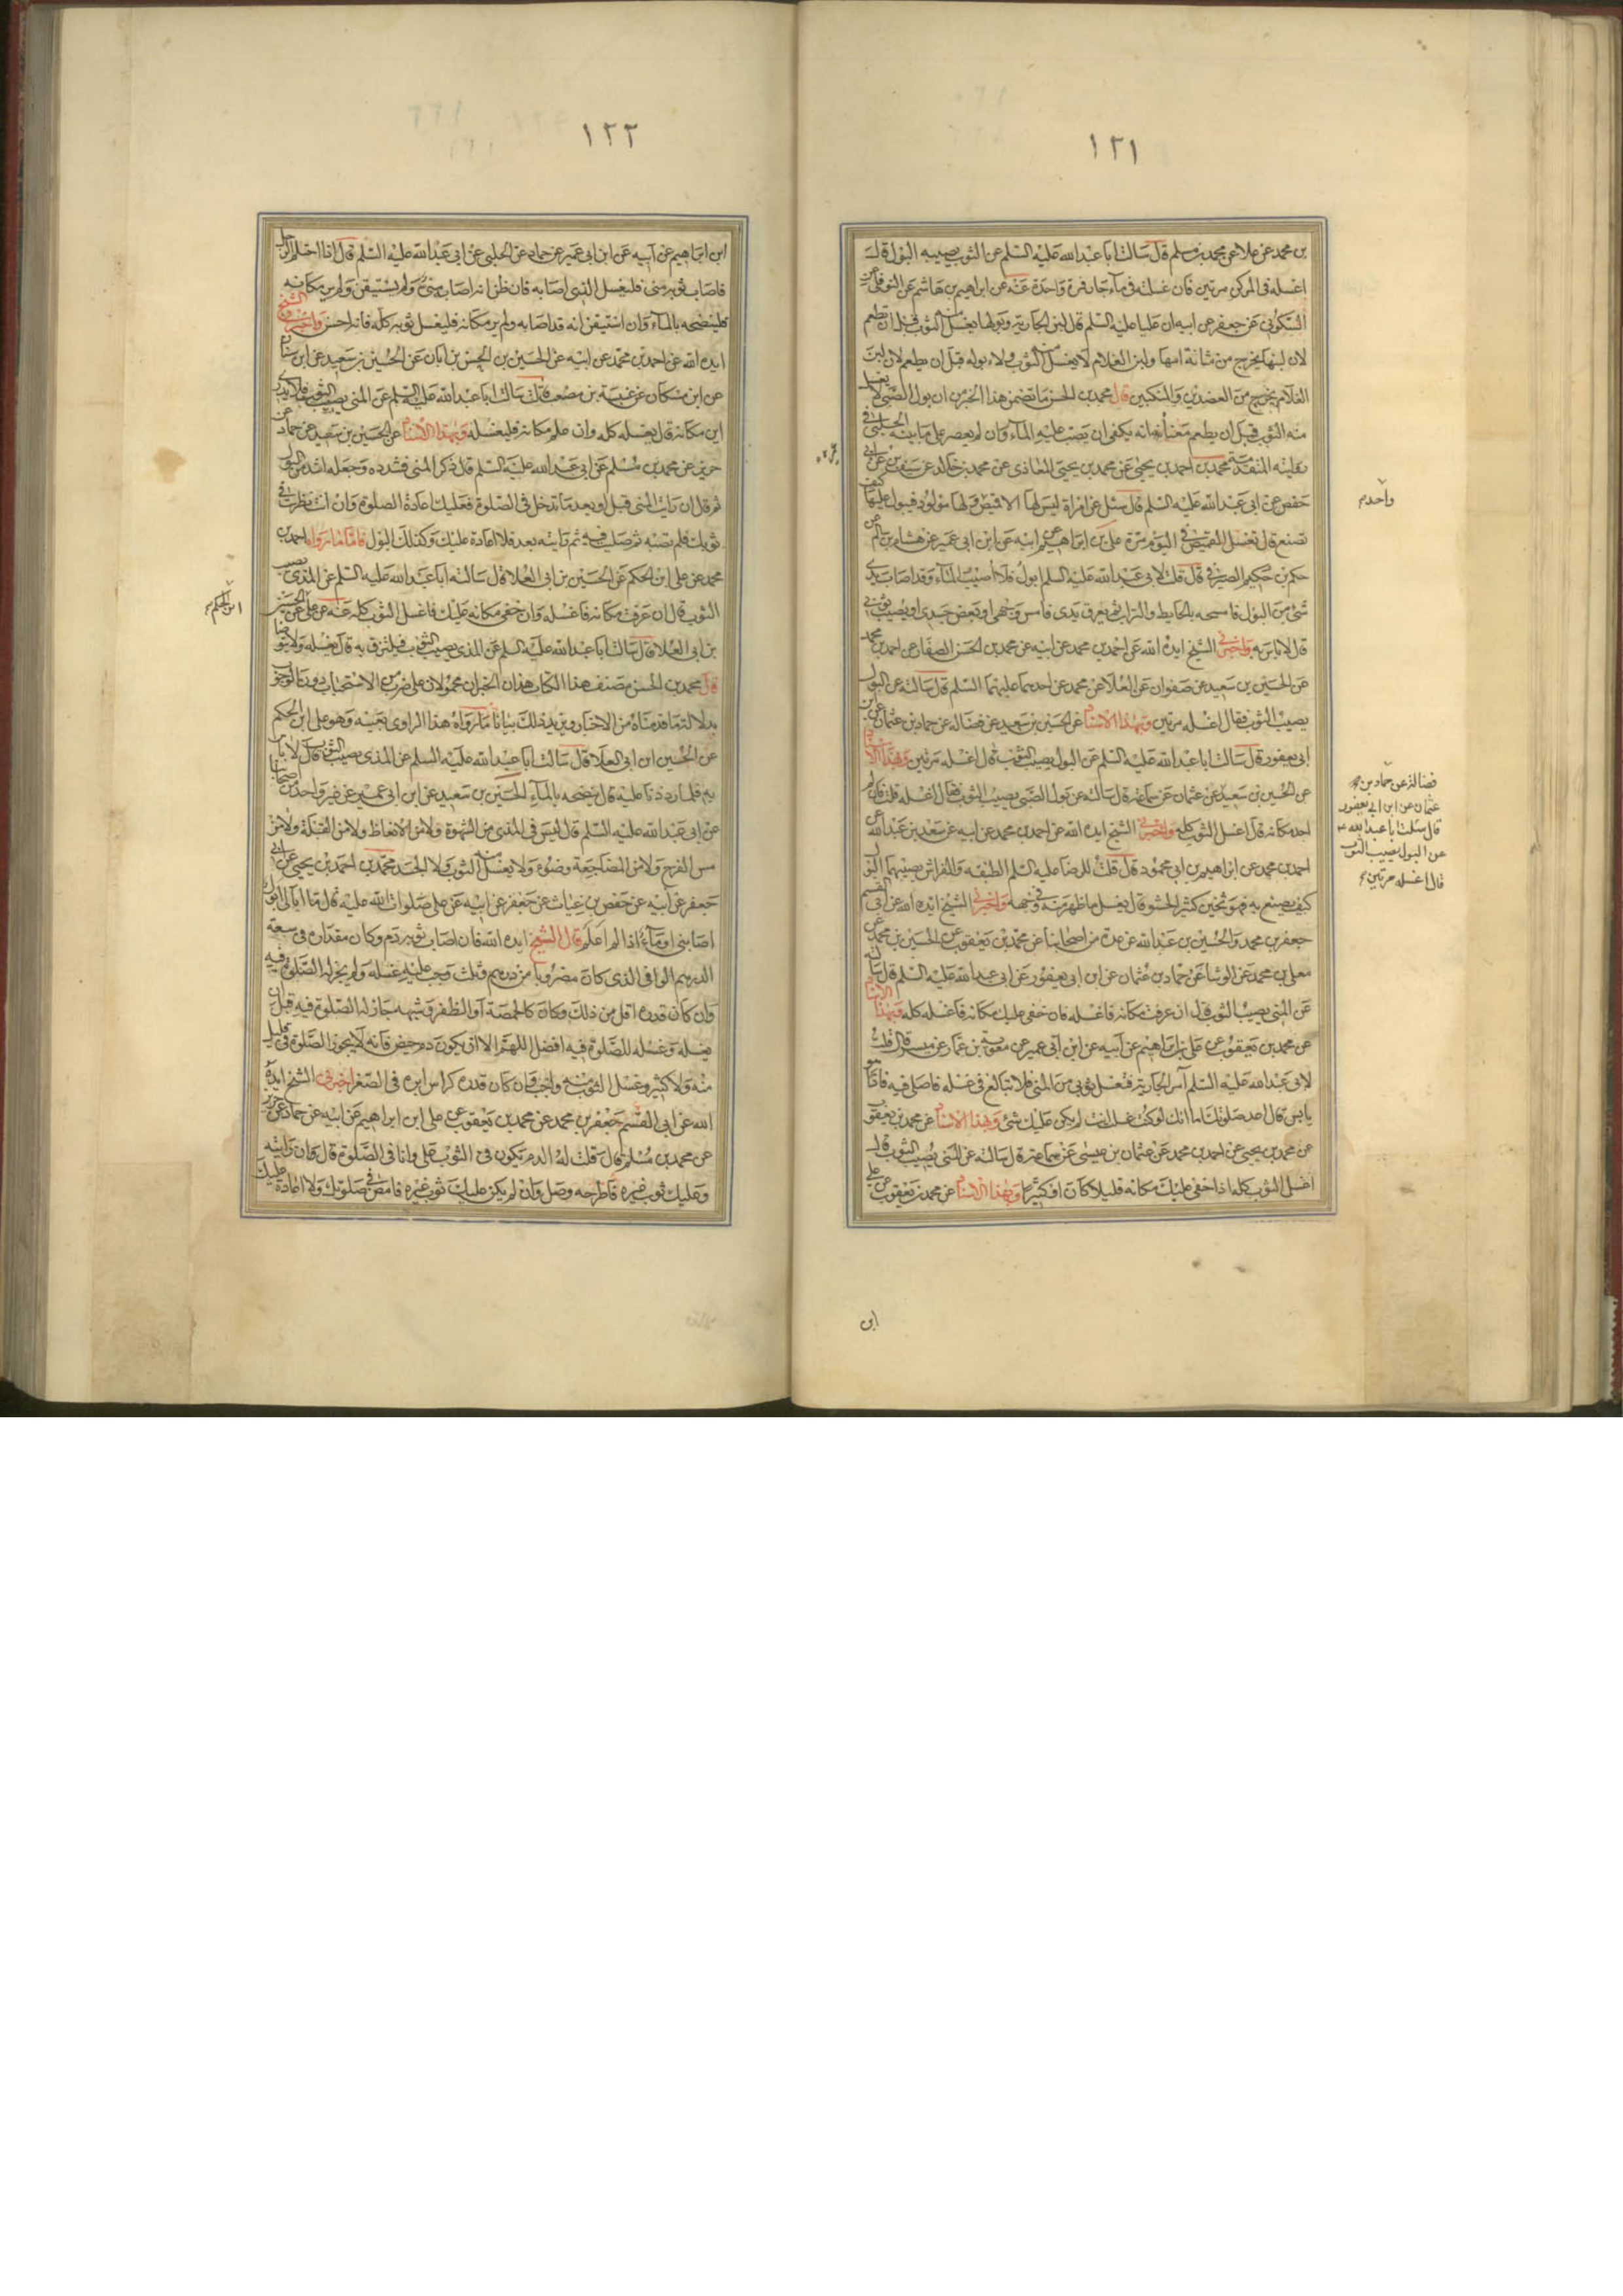 ١٢١
بن محمد عن علا عن محمد بن مسلم قال سالت ابا عبد الله عليه السلم عن الثوب يصيبه البول قال
اغسله في المركن مرتين فان غسلته في ماء جار فمرة واحدة عنه عن ابراهيم بن هاشم عن النوفلي عن
السكوني عن جعفر عن ابيه ان عليا عليه السلم قال لبن الجارية وبولها يغسل منه الثوب قبل ان تطعم
لان لبنها يخرج من مثانة امها ولبن الغلام لا يغسل منه الثوب ولا بوله قبل ان يطعم لان لبن
الغلام يخرج من العضدين والمنكبين قال محمد بن الحسن ما تضمن هذا الخبر من ان بول الصبي لا يغسل
منه الثوب قبل ان يطعم معناه انه يكفي ان يصب عليه الماء وان لم يعصر على ما بينه الحلبي في
روايته المتقدمة محمد بن احمد بن يحيى عن محمد بن يحيى المعاذي عن محمد بن خالد عن سيف بن عن ابي
حفص عن ابي عبد الله عليه السلم قال سئل عن امراة ليس لها الا قميص ولها مولود فيبول عليها كيف
تصنع قال تغسل القميص في اليوم مرة علي بن ابراهيم عن ابيه عن ابن ابي عمير عن هشام بن سالم عن
حكم بن حكيم الصيرفي قال قلت لابي عبد الله عليه السلم ابول فلا اصيب الماء وقد اصاب يدي
شئ من البول فامسحه بالحايط والتراب ثم يعرق يدي فامس وجهي او بعض جسدي او يصيب ثوبي
قال لا باس به واخبرني الشيخ ايده الله عن احمد بن محمد عن ابيه عن محمد بن الحسن الصفار عن احمد بن محمد
عن الحسين بن سعيد عن صفوان عن العلا عن محمد عن احدهما عليهما السلم قال سالته عن البول
يصيب الثوب فقال اغسله مرتين وبهذا الاسناد عن الحسين بن سعيد عن فضالة عن حماد بن عثمان عن ابن
ابي يعفور قال سالت ابا عبد الله عليه السلم عن البول يصيب الثوب قال اغسله مرتين وبهذا الاسناد
عن الحسين بن سعيد عن عثمان عن سماعة قال سالته عن بول الصبي يصيب الثوب فقال اغسله قلت فان لم
اجد مكانه قال اغسل الثوب كله واخبرني الشيخ ايده الله عن احمد بن محمد عن ابيه عن سعد بن عبد الله عن
احمد بن محمد عن ابراهيم بن ابي محمود قال قلت للرضا عليه السلم الطنفسة والفراش يصيبهما البول
كيف يصنع به فهو ثخين كثير الحشو قال يغسل ما ظهر منه في وجهه واخبرني الشيخ ايده الله عن ابي القسم
جعفر بن محمد والحسين بن عبد الله عن عدة من اصحابنا عن محمد بن يعقوب عن الحسين بن محمد عن
معلى بن محمد عن الوشا عن حماد بن عثمان عن ابن ابي يعفور عن ابي عبد الله عليه السلم قال سالته
عن المني يصيب الثوب قال ان عرفت مكانه فاغسله فان خفي عليك مكانه فاغسله كله وبهذا الاسناد
عن محمد بن يعقوب عن علي بن ابراهيم عن ابيه عن ابن ابي عمير عن معوية بن عمار عن ميسر قال قلت
لابي عبد الله عليه السلم آمر الجارية فتغسل ثوبي من المني فلا تبالغ في غسله فاصلي فيه فاذا هو
يابس قال اعد صلوتك اما انك لو كنت غسلت انت لم يكن عليك شئ وبهذا الاسناد عن محمد بن يعقوب
عن محمد بن يحيى عن احمد بن محمد عن عثمان بن عيسى عن سماعة قال سالته عن المني يصيب الثوب قال
اغسل الثوب كله اذا خفي عليك مكانه قليلا كان او كثيرا وبهذا الاسناد عن محمد بن يعقوب عن علي
واحد
فضالة عن حماد بن
عثمان عن ابن ابي يعفور
قال سئلت ابا عبد الله
عن البول يصيب الثوب
قال اغسله مرتين
ابن
١٢٢
ابن ابراهيم عن ابيه عن ابن ابي عمير عن حماد عن الحلبي عن ابي عبد الله عليه السلم قال اذا احتلم الرجل
فاصاب ثوبه مني فليغسل الذي اصابه فان ظن انه اصابه مني ولم يستيقن ولم ير مكانه
فلينضحه بالماء وان استيقن انه قد اصابه ولم ير مكانه فليغسل ثوبه كله فانه احسن واخبرني الشيخ
ايده الله عن احمد بن محمد عن ابيه عن الحسين بن الحسن بن ابان عن الحسين بن سعيد عن ابن سنان
عن ابن مسكان عن عنبسة بن مصعب قال سالت ابا عبد الله عليه السلم عن المني يصيب الثوب فلا يدري
اين مكانه قال يغسله كله وان علم مكانه فليغسله وبهذا الاسناد عن الحسين بن سعيد عن حماد عن
حريز عن محمد بن مسلم عن ابي عبد الله عليه السلم قال ذكر المني فشدده وجعله اشد من البول
ثم قال ان رايت المني قبل او بعد ما تدخل في الصلوة فعليك اعادة الصلوة وان انت نظرت في
ثوبك فلم تصبه ثم صليت فيه ثم رايته بعد فلا اعادة عليك وكذلك البول فاما ما رواه احمد بن
محمد عن علي ابن الحكم عن الحسين بن ابي العلا قال سالت ابا عبد الله عليه السلم عن المذي يصيب
الثوب قال ان عرفت مكانه فاغسله وان خفي مكانه عليك فاغسل الثوب كله عنه عن علي عن الحسين
بن ابي العلا قال سالت ابا عبد الله عليه السلم عن المذي يصيب الثوب فيلتزق به قال يغسله ولا يتوضا
قال محمد بن الحسن مصنف هذا الكتاب هذان الخبران محمولان على ضرب من الاستحباب دون الوجوب
بدلالة ما قدمناه من الاخبار ويزيد ذلك بيانا ما رواه هذا الراوي بعينه وهو علي ابن الحكم
عن الحسين ابن ابي العلا قال سالت ابا عبد الله عليه السلم عن المذي يصيب الثوب قال لا باس
به فلما رددنا عليه قال ينضحه بالماء الحسين بن سعيد عن ابن ابي عمير عن غير واحد من اصحابنا
عن ابي عبد الله عليه السلم قال ليس في المذي من الشهوة ولا من الانعاظ ولا من القبلة ولا من
مس الفرج ولا من المضاجعة وضوء ولا يغسل منه الثوب ولا الجسد محمد بن احمد بن يحيى عن ابي
جعفر عن ابيه عن حفص بن غياث عن جعفر عن ابيه عن علي صلوات الله عليه قال ما ابالي ابول
اصابني او ماء اذا لم اعلم قال الشيخ ايده الله فان اصاب ثوبه دم وكان مقداره في سعة
الدرهم الوافي الذي كان مضروبا من درهم وثلث وجب عليه غسله ولم يجز له الصلوة فيه
وان كان قدره اقل من ذلك وكان كالحمصة او الظفر وشبهه جاز له الصلوة فيه قبل ان
يغسله وغسله للصلوة فيه افضل اللهم الا ان يكون دم حيض فانه لا يجوز الصلوة في قليل
منه ولا كثير وغسل الثوب منه واجب وان كان قدره كراس ابرة في الصغر اخبرني الشيخ ايده
الله عن ابي القسم جعفر بن محمد عن محمد بن يعقوب عن علي ابن ابراهيم عن ابيه عن حماد عن حريز
عن محمد بن مسلم قال قلت له الدم يكون في الثوب علي وانا في الصلوة قال ان رايته
وعليك ثوب غيره فاطرحه وصل وان لم يكن عليك ثوب غيره فامض في صلوتك ولا اعادة عليك
ابن الحكم